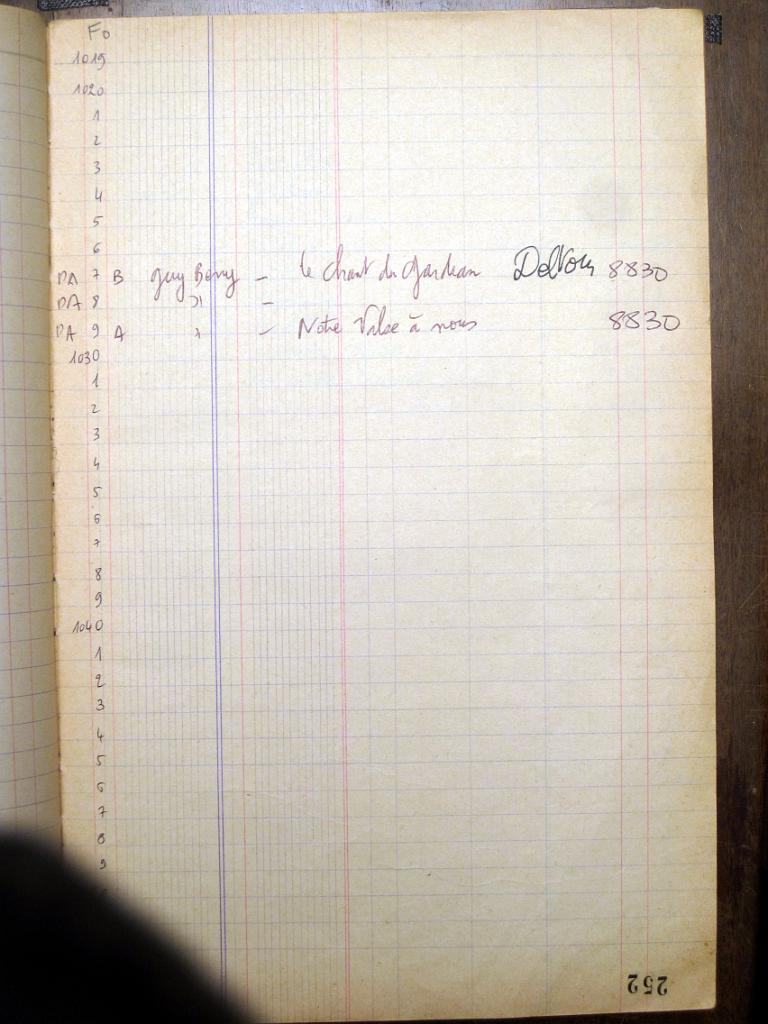 Fo
1019
1020
1
2
3
4
5
6
PA 7 B Guy Berry - le chant du gardian DelVou 8830
PA 8 " -
PA 9 A " - Notre Valse à nous 8830
1030
1
2
3
4
5
6
7
8
9
1040
1
2
3
4
5
6
7
8
9
252